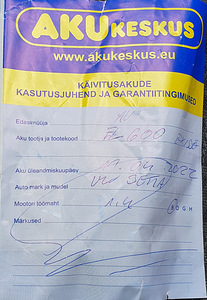 AKUKESKUS
www.akukeskus.eu
KÄIVITUSAKUDE
KASUTUSJUHEND JA GARANTIITINGIMUSED
Edasimüüja
Aku tootja ja tootekood 600
Aku üleandmiskuupäev 2022
Auto mark ja mudel VW
Mootori töömaht 1.4 B D G H
Märkused